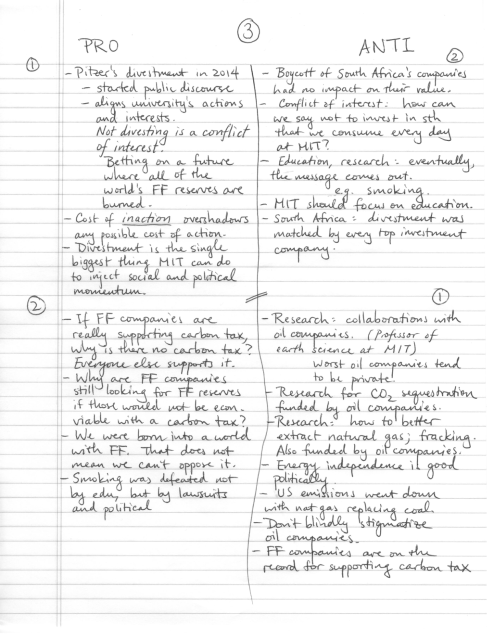 ③
PRO
ANTI
①
- Pitzer's divestment in 2014
- started public discourse
- aligns university's actions
and interests.
Not divesting is a conflict
of interest:
Betting on a future
where all of the
world's FF reserves are
burned.
- Cost of inaction overshadows
any possible cost of action.
- Divestment is the single
biggest thing MIT can do
to inject social and political
momentum.
②
- Boycott of South Africa's companies
had no impact on their value.
- Conflict of interest: how can
we say not to invest in sth
that we consume every day
at MIT?
- Education, research: eventually,
the message comes out.
e.g. smoking.
- MIT should focus on education.
- South Africa: divestment was
matched by every top investment
company.
②
- If FF companies are
really supporting carbon tax,
why is there no carbon tax?
Everyone else supports it.
- Why are FF companies
still looking for FF reserves
if those would not be econ.
viable with a carbon tax?
- We were born into a world
with FF. That does not
mean we can't oppose it.
- Smoking was defeated not
by edu, but by lawsuits
and political
①
- Research: collaborations with
oil companies. (Professor of
earth science at MIT)
Worst oil companies tend
to be private!
- Research for CO2 sequestration
funded by oil companies.
- Research: how to better
extract natural gas; fracking.
Also funded by oil companies.
- Energy independence is good
politically.
- US emissions went down
with nat gas replacing coal.
- Don't blindly stigmatize
oil companies.
- FF companies are on the
record for supporting carbon tax